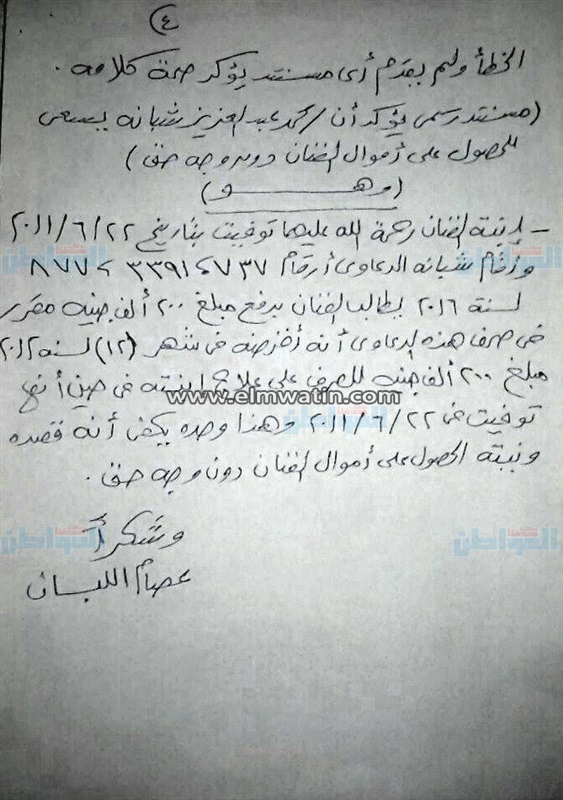 ٤
الخطأ ولم يقدم أى مستند يؤكد صحة كلامه .
( مستند رسمى يؤكد أن / محمد عبد العزيز شبانه يسعى
للحصول على أموال الفنان دون وجه حق )
( وهـــو )
- إبنة الفنان رحمة الله عليها توفيت بتاريخ ٢٢/٦/٢٠١١
وأقام شبانه الدعاوى أرقام ٧٣٧ ، ٣٣٩١ ، ٨٧٧
لسنة ٢٠١٦ يطالب الفنان بدفع مبلغ ٢٠٠ ألف جنيه مقرر
فى صحف هذه الدعاوى أنه أقرضه فى شهر (١٢) لسنة ٢٠١٢
مبلغ ٢٠٠ ألف جنيه للصرف على علاج ابنته فى حين أنها
توفيت فى ٢٢/٦/٢٠١١ وهذا وحده يكفى أنه قصده
ونيته الحصول على أموال الفنان دون وجه حق .
وشكراً
عصام اللبان
www.elmwatin.com
المواطن
المواطن
المواطن
المواطن